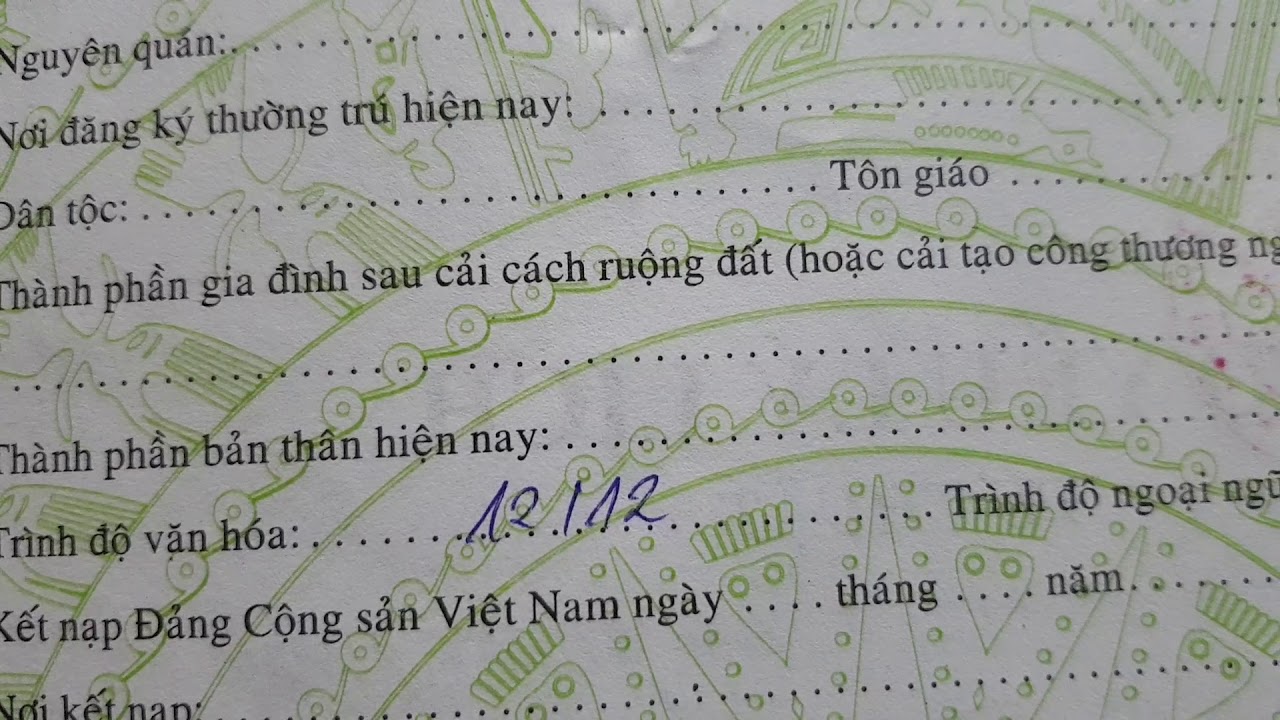 Nguyên quán:
Nơi đăng ký thường trú hiện nay:
Dân tộc: Tôn giáo
Thành phần gia đình sau cải cách ruộng đất (hoặc cải tạo công thương ng
Thành phần bản thân hiện nay:
Trình độ văn hóa: 12/12 Trình độ ngoại ngữ
Kết nạp Đảng Cộng sản Việt Nam ngày .... tháng .... năm
Nơi kết nạp: